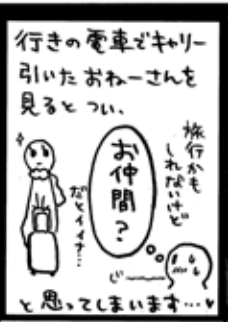 行きの電車でキャリー
引いたおねーさんを
見ると つい、
旅行かも
しれないけど
お仲間？
だとイイナ…
じーーー
と思ってしまいます…♥